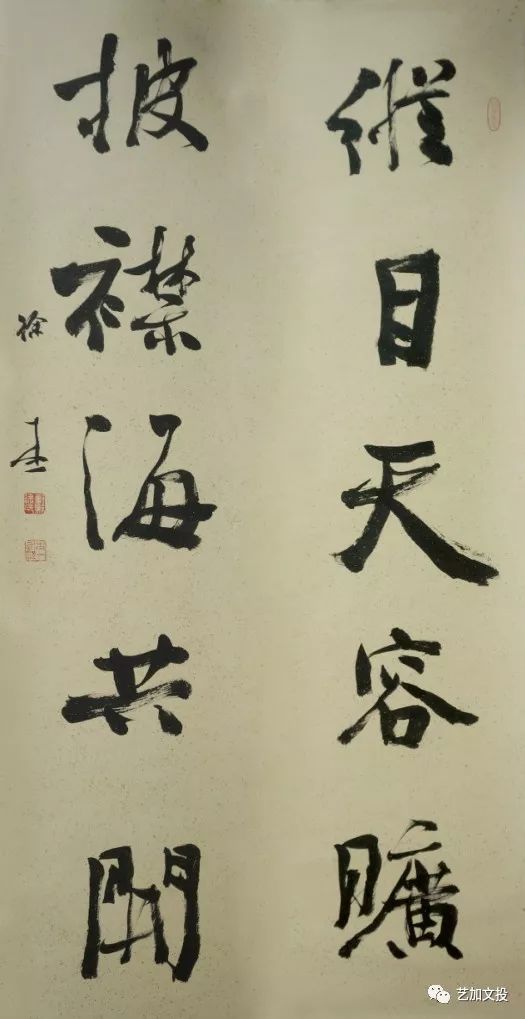 縱目天容曠
披襟海共開
徐
艺加文投